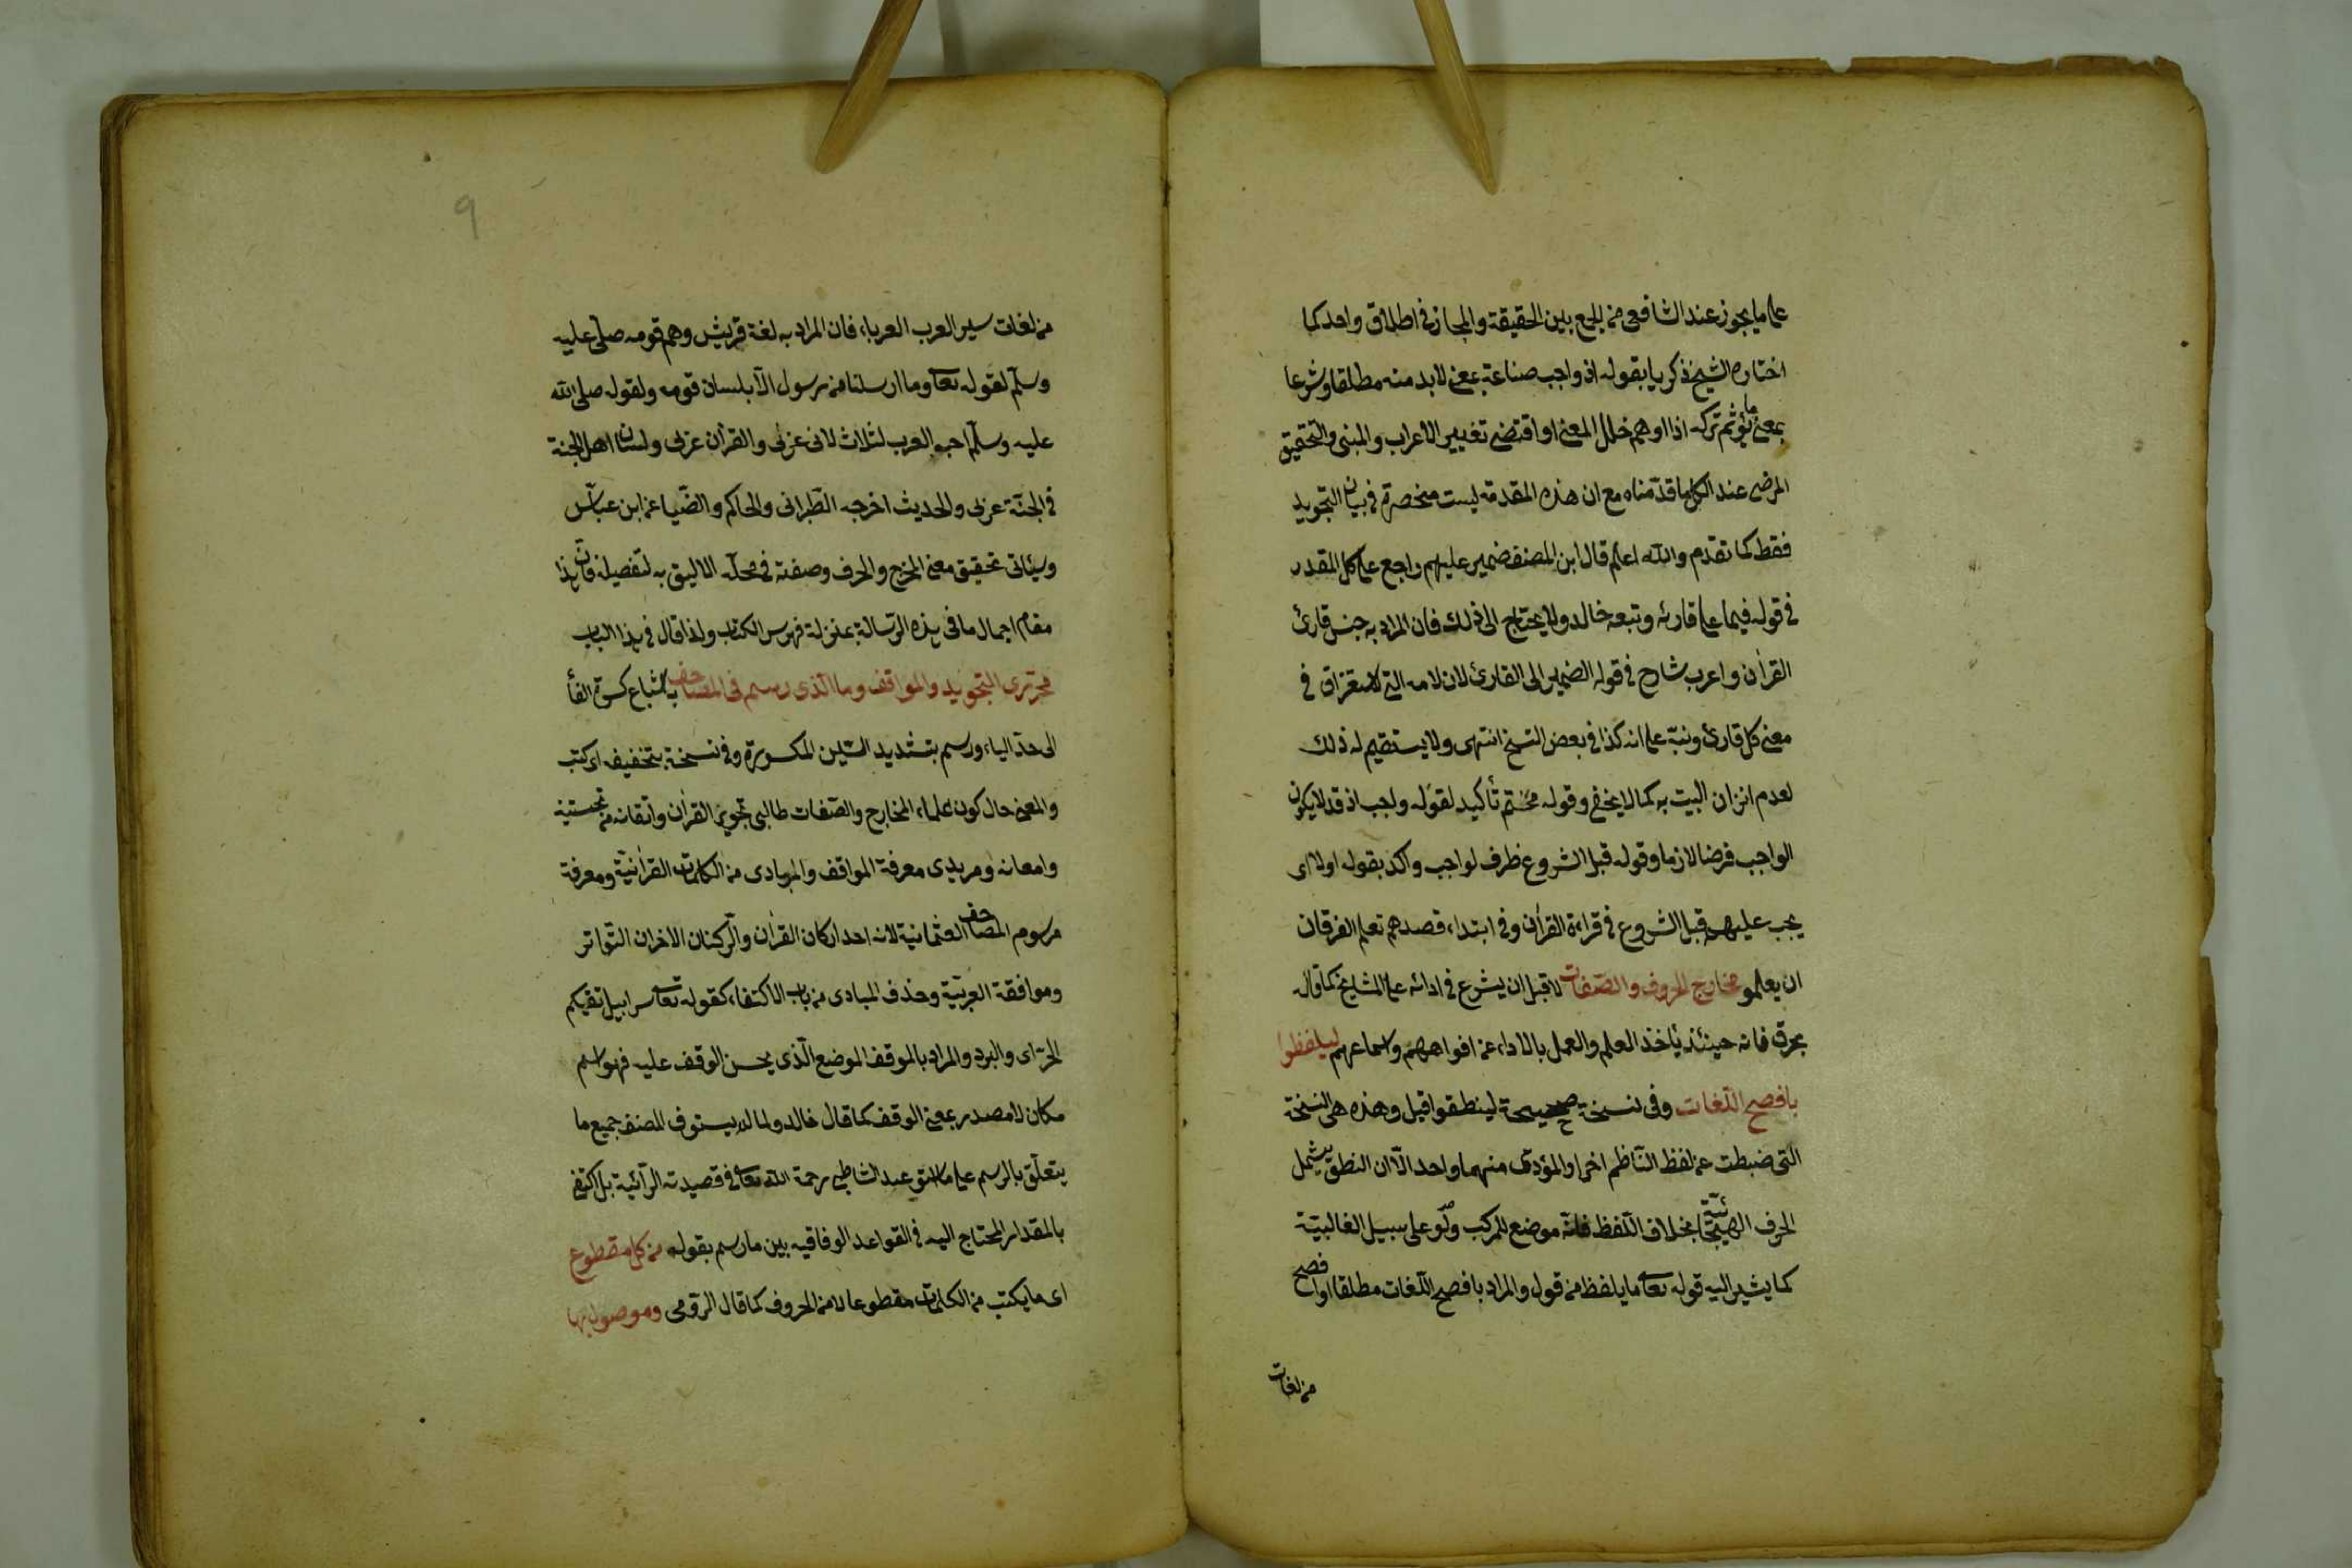 على ما يجوز عند الشافعى من الجمع بين الحقيقة والمجاز فى اطلاق واحد كما
اختاره الشيخ زكريا بقوله اذ واجب صناعة بمعنى لابد منه مطلقا وشرعا
بمعنى ما يؤثم تركه اذا اوهم خلل المعنى او اقتضى تغيير الاعراب والمبنى والتحقيق
المرضى عند الكل ما قدمناه مع ان هذه المقدمة ليست منحصرة فى بيان التجويد
فقط كما تقدم والله اعلم قال ابن المصنف ضمير عليهم راجع على كل المقدر
فى قوله فيما على قارئه وتبعه خالد ولا يحتاج الى ذلك فان المراد به جنس قارئ
القرأن واغرب شارح فى قوله الضمير الى القارئ لان لامه التى للاستغراق فى
معنى كل قارئ ونبه على انه كذا فى بعض النسخ انتهى ولا يستقيم له ذلك
لعدم اتزان البيت به كما لا يخفى وقوله محتم تأكيد لقوله واجب اذ قد لا يكون
الواجب فرضا لازما وقوله قبل الشروع ظرف لواجب واكد بقوله اولا اى
يجب عليهم قبل الشروع فى قراءة القرأن وفى ابتداء قصدهم تعلم الفرقان
ان يعلمو مخارج الحروف والصفات لا قبل ان يشرع فى ادائه على المشايخ كما قاله
بحرق فانه حينئذ يأخذ العلم والعمل بالاداء عن افواههم واسماعهم ليلفظوا
بافصح اللغات وفى نسخة صحيحة لينطقوا قيل وهذه هى النسخة
التى ضبطت عن لفظ الناظم اخرا والمؤدى منهما واحد الا ان النطق يشمل
الحرف الهجائية بخلاف اللفظ فانه موضع للمركب ولو على سبيل الغالبية
كما يشير اليه قوله تعالى ما يلفظ من قول والمراد بافصح اللغات مطلقا او افصح
من لغات
٩
من لغات سير العرب العرباء فان المراد به لغة قريش وهم قومه صلى عليه
وسلم لقوله تعالى وما ارسلنا من رسول الا بلسان قومه ولقوله صلى الله
عليه وسلم احبو العرب لثلاث لانى عربى والقرأن عربى ولسان اهل الجنة
فى الجنة عربى والحديث اخرجه الطبرانى والحاكم والضياء عن ابن عباس
وسيأتى تحقيق معنى المخرج والحرف وصفته فى محله الاليق به لتفصيله فان هذا
مقام اجمال ما فى هذه الرسالة بمنزلة فهرس الكتاب ولذا قال فى هذا الباب
محررى التجويد والمواقف وما الذى رسم فى المصاحف باشباع كسرة الفأ
الى حد الياء ورسم بتشديد السين المكسورة وفى نسخة بتخفيف اى كتب
والمعنى حال كون علماء المخارج والصفات طالبى تجويد القرأن واتقانه من تحسينه
وامعانه ومريدى معرفة المواقف والمبادى من الكلمات القرأنية ومعرفة
مرسوم المصاحف العثمانية لانه احد اركان القرأن والركنان الاخران التواتر
وموافقة العربية وحذف المبادى من باب الاكتفاء كقوله تعالى سرابيل تقيكم
الحر اى والبرد والمراد بالموقف الموضع الذى يحسن الوقف عليه فهو اسم
مكان لا مصدر بمعنى الوقف كما قال خالد ولما لم يستوف المصنف جميع ما
يتعلق بالرسم على ما عبد الشاطبى رحمة الله تعالى فى قصيدته الرائية بل اكتفى
بالمقدار المحتاج اليه فى القواعد الوفاقيه بين ما رسم بقوله من كل مقطوع
اى ما يكتب من الكلمات مقطوعا لا من الحروف كما قال الرومى وموصول بها